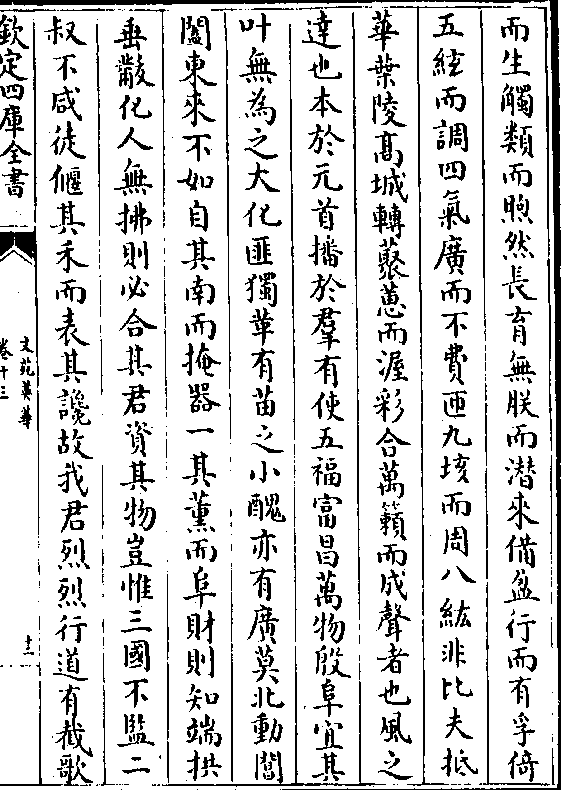 而生觸類而煦然長育無朕而潛來備盈行而有孚倚
五絃而調四氣廣而不費匝九垓而周八紘非比夫抵
華葉陵髙城轉藂蕙而渥彩合萬籟而成聲者也風之
達也本於元首播於羣有使五福富昌萬物殷阜宜其
叶無為之大化匪獨革有苗之小醜亦有廣莫北動閶
闔東來不如自其南而掩器一其薫而阜財則知端拱
垂黻化人無拂則必合其君資其物豈惟三國不監二
叔不咸徒偃其禾而表其讒故我君烈烈行道有截歌
欽定四庫全書
文苑英華
卷十三
十三